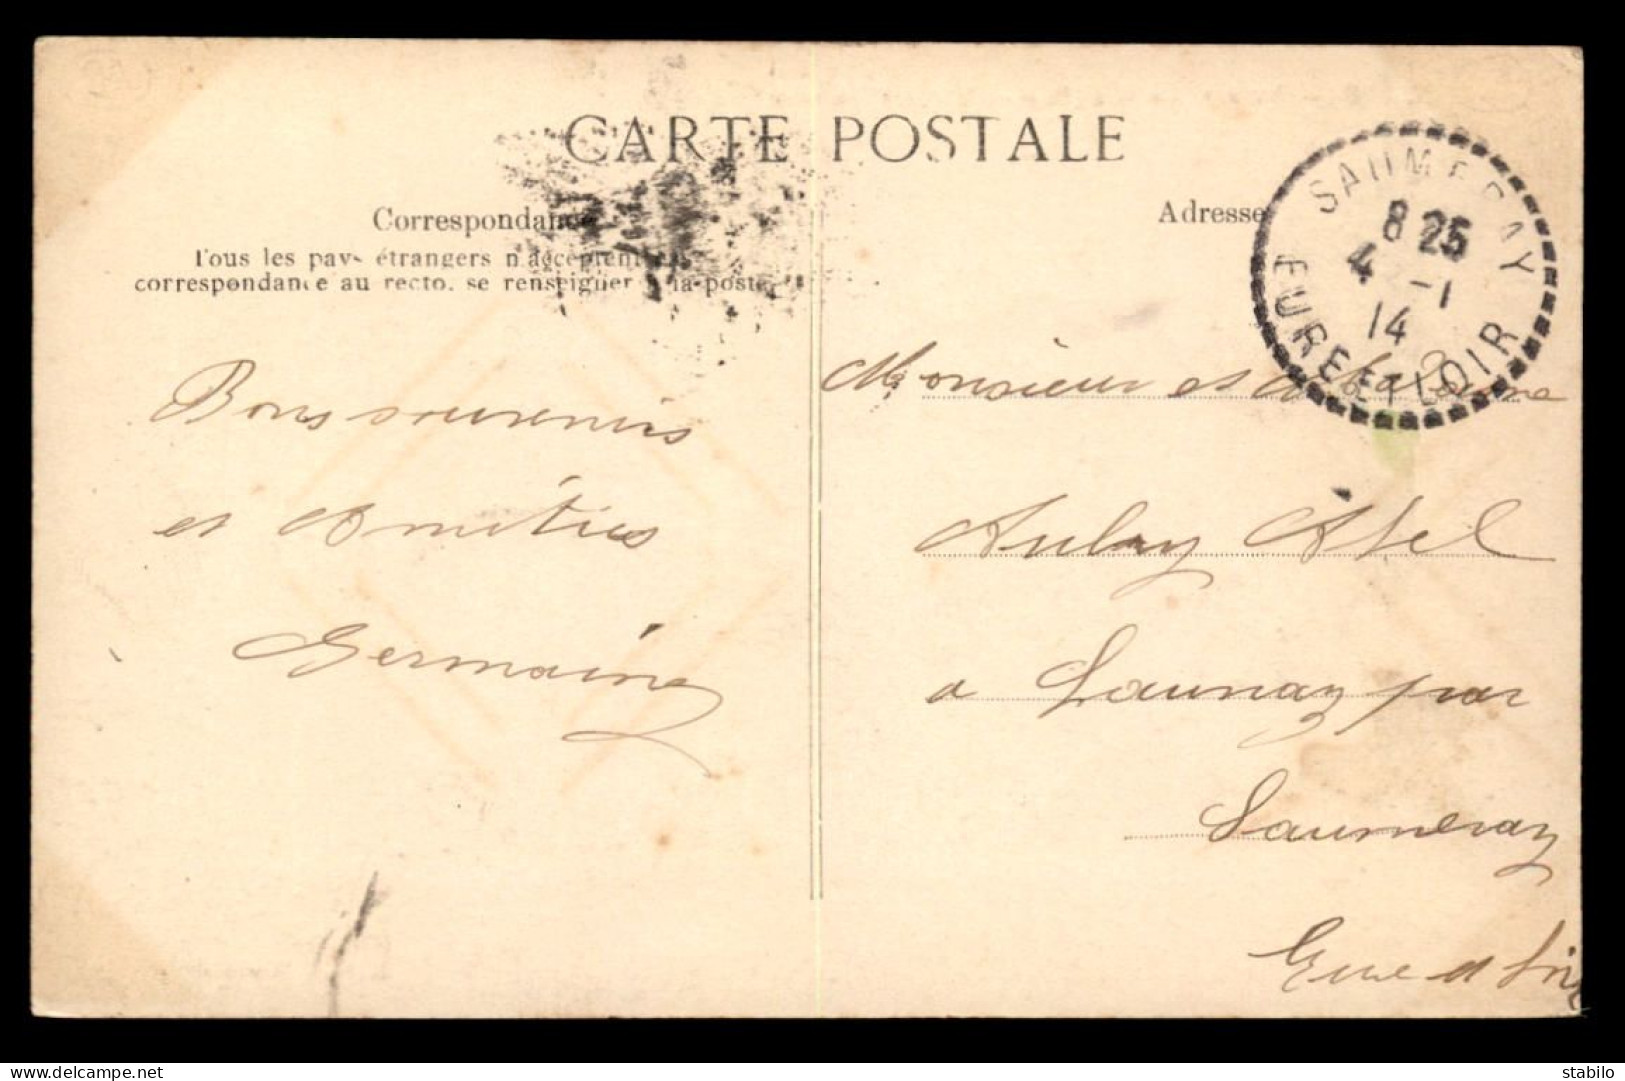 CARTE POSTALE
Correspondance
Tous les pays étrangers n'acceptent
correspondance au recto. se renseigner à la poste
Bons souvenirs
et Amitiés
Germaine
Adresse
SAUMERAY
8 25
4 -1
14
EURE ET LOIR
Monsieur et Madame
Aubry Abel
a Launay par
Saumeray
Eure et Loir
www.delcampe.net
stabilo